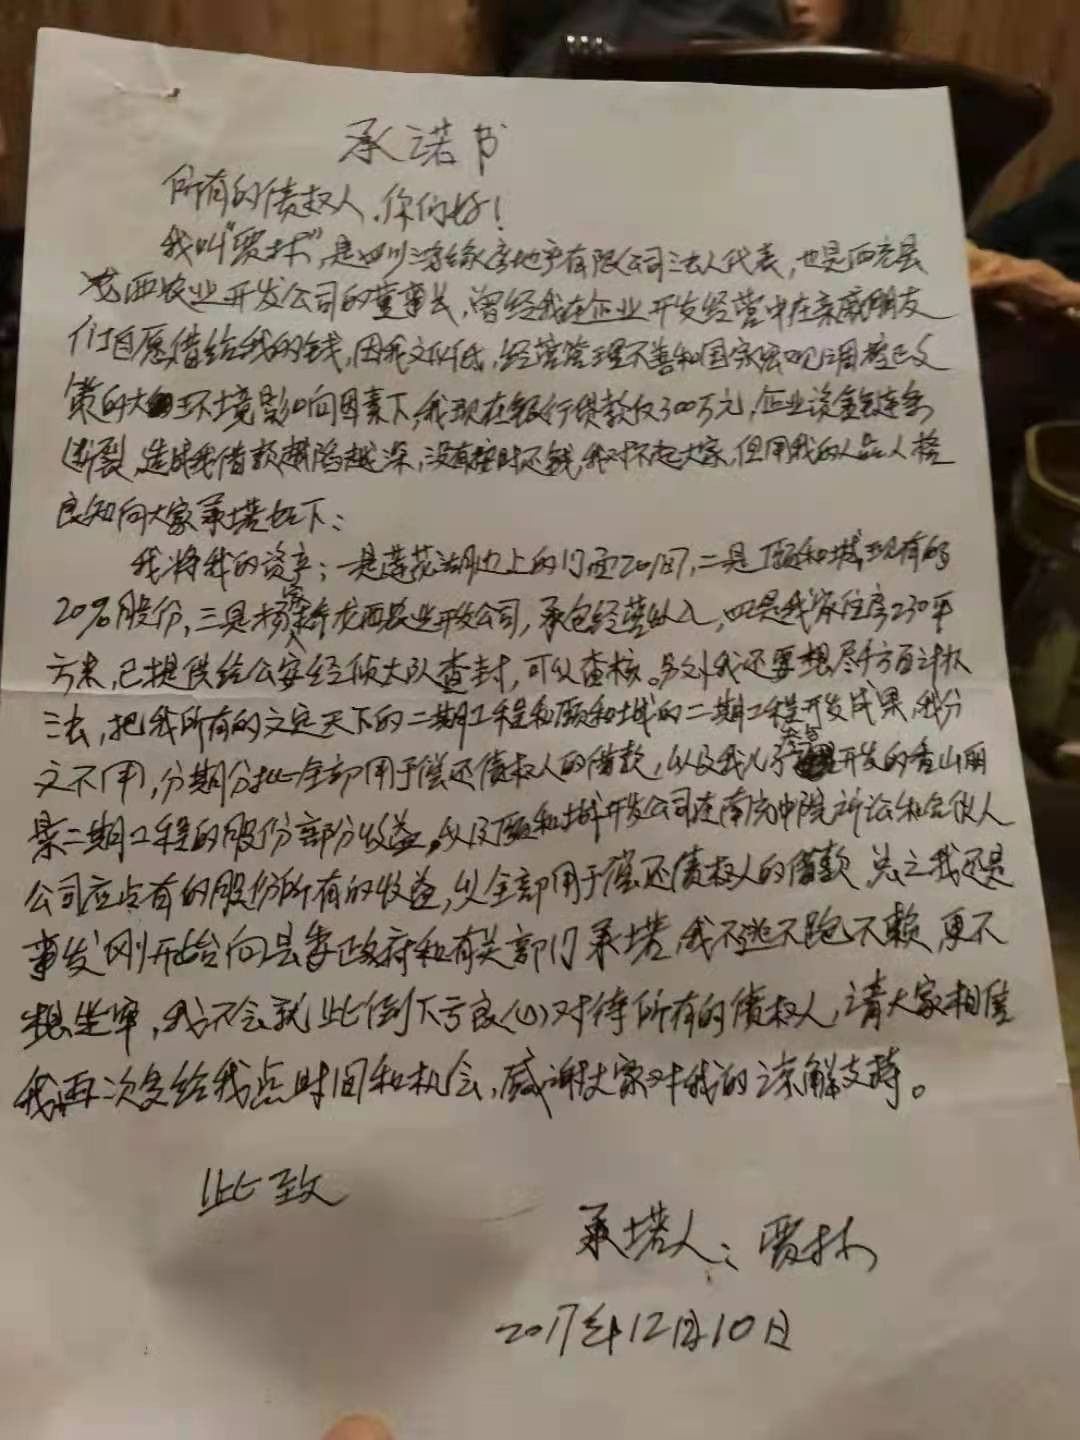 承诺书
所有的债权人,你们好!
我叫"贾林",是四川 房地产有限公司法人代表,也是西充县
龙西农业开发公司的董事长,曾经我在企业开发经营中在亲戚朋友
们自愿借给我的钱,因我文化低,经营管理不善和国家宏观调控政
策的大环境影响因素下,我现在银行贷款仅300万元,企业资金链条
断裂,造成我借款越陷越深,没有按时还钱,我对不起大家,但用我的人品人格
良知向大家承塔如下:
我将我的资产;一是莲花湖边上的门面20间,二是颐和城现有的
20%股份,三是 龙西农业开发公司,承包经营收入,四是我家住房230平
方米,已提供给公安经侦大队查封,可以查核。另外我还要想尽千方百计权
法,把我所有的文定天下的二期工程和颐和城的二期工程开发成果,我分
文不用,分期分批全部用于偿还债权人的借款,以及我儿子 开发的香山丽
景二期工程的股份部分收益,以及颐和城开发公司在南充中院诉讼和合伙人
公司应占有的股份所有的收益,以全部用于偿还债权人的借款,总之我还是
事发刚开始向县委政府和有关部门承塔,我不逃不跑不赖,更不
想坐牢,我不会就此倒下亏良(心)对待所有的债权人,请大家相信
我再次多给我点时间和机会,感谢大家对我的谅解支持。
此致
承塔人:贾林
2017年12月10日